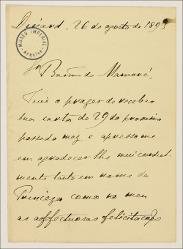 Dinard, 26 de agosto de 189
Sr Barão de Mamoré,
Tive o prazer de receber
sua carta de 29 do proximo
passado mez e apresso-me
em agradecer-lhe mui cordial-
mente tanto em nome da
Princeza como no meu
as affectuosas felicitações